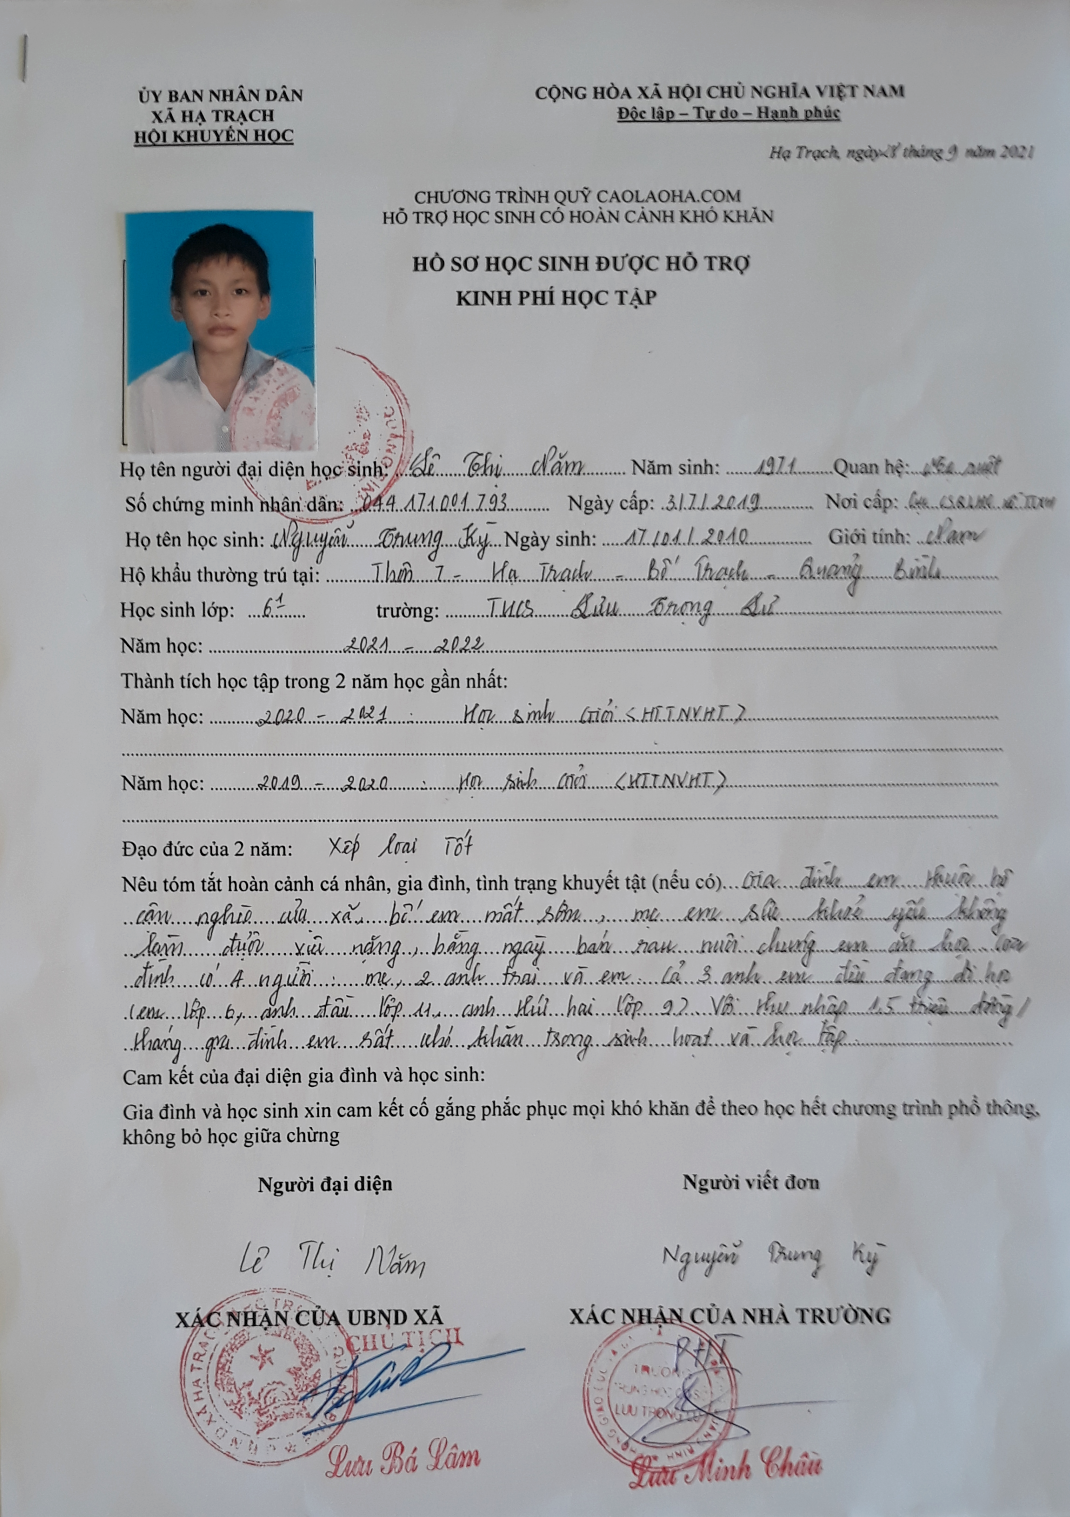 ỦY BAN NHÂN DÂN
XÃ HẠ TRẠCH
HỘI KHUYẾN HỌC
CỘNG HÒA XÃ HỘI CHỦ NGHĨA VIỆT NAM
Độc lập – Tự do – Hạnh phúc
Hạ Trạch, ngày tháng 9 năm 2021
CHƯƠNG TRÌNH QUỸ CAOLAOHA.COM
HỖ TRỢ HỌC SINH CÓ HOÀN CẢNH KHÓ KHĂN
HỒ SƠ HỌC SINH ĐƯỢC HỖ TRỢ
KINH PHÍ HỌC TẬP
Họ tên người đại diện học sinh: Lê Thị Năm Năm sinh: 1971 Quan hệ: Mẹ ruột
Số chứng minh nhân dân: 044171001793 Ngày cấp: 3/7/2019 Nơi cấp:
Họ tên học sinh: Nguyễn Trung Kỳ Ngày sinh: 17/01/2010 Giới tính: Nam
Hộ khẩu thường trú tại: Thôn 7 - Hạ Trạch - Bố Trạch - Quảng Bình
Học sinh lớp: 6¹ trường: THCS Lưu Trọng Lư
Năm học: 2021 - 2022
Thành tích học tập trong 2 năm học gần nhất:
Năm học: 2020 - 2021 : Học sinh Giỏi (HTTNVHT)
Năm học: 2019 - 2020 : Học sinh Giỏi (HTTNVHT)
Đạo đức của 2 năm: Xếp loại Tốt
Nêu tóm tắt hoàn cảnh cá nhân, gia đình, tình trạng khuyết tật (nếu có) Gia đình em thuộc hộ
cận nghèo của xã, bố em mất sớm, mẹ em sức khoẻ yếu không
làm được việc nặng, hằng ngày bán rau nuôi chúng em ăn học. Gia
đình có 4 người: mẹ, 2 anh trai và em. Cả 3 anh em đều đang đi học
(em lớp 6, anh đầu lớp 11, anh thứ hai lớp 9). Với thu nhập 1.5 triệu đồng/
tháng gia đình em rất khó khăn trong sinh hoạt và học tập.
Cam kết của đại diện gia đình và học sinh:
Gia đình và học sinh xin cam kết cố gắng phắc phục mọi khó khăn để theo học hết chương trình phổ thông,
không bỏ học giữa chừng
Người đại diện
Người viết đơn
Lê Thị Năm
Nguyễn Trung Kỳ
XÁC NHẬN CỦA UBND XÃ
XÁC NHẬN CỦA NHÀ TRƯỜNG
CHỦ TỊCH
PHT
Lưu Bá Lâm
Lưu Minh Châu